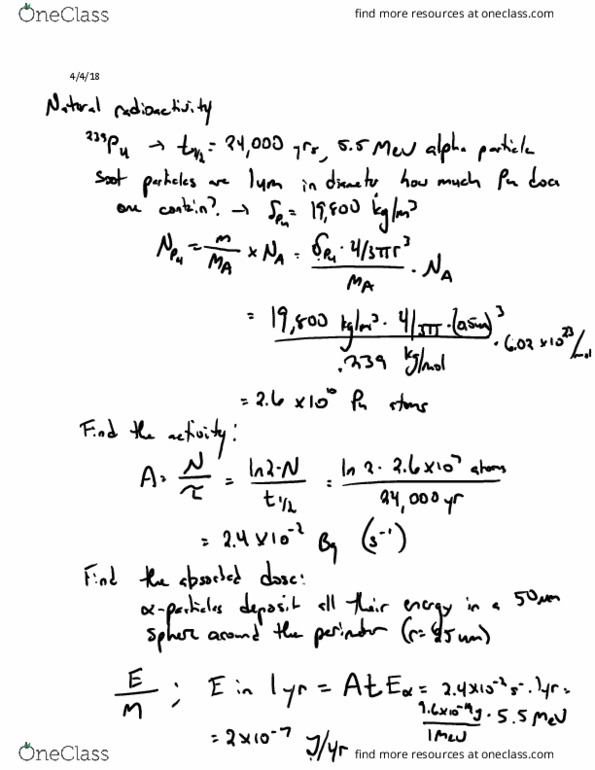 OneClass
find more resources at oneclass.com
4/4/18
Natural radioactivity
²³⁹Pu → t½ = 24,000 yrs, 5.5 MeV alpha particle
Soot particles are 1μm in diameter, how much Pu does
one contain? → δPu = 19,800 kg/m³
NPu = m/MA × NA = δPu · 4/3πr³/MA · NA
= 19,800 kg/m³ · 4/3π · (0.5μm)³/.239 kg/mol · 6.02 × 10²³/mol
= 2.6 × 10¹⁰ Pu atoms
Find the activity:
A = N/τ = ln2·N/t½ = ln 2 · 2.6×10⁷ atoms/24,000 yr
= 2.4×10⁻² Bq (s⁻¹)
Find the absorbed dose:
α-particles deposit all their energy in a 50μm
sphere around the (r=25um)
E/M ; E in 1yr = AtEα = 2.4×10⁻²s⁻¹·1yr·
1.6×10⁻¹⁹J/1MeV · 5.5 MeV
= 2×10⁻⁷ J/yr
OneClass
find more resources at oneclass.com